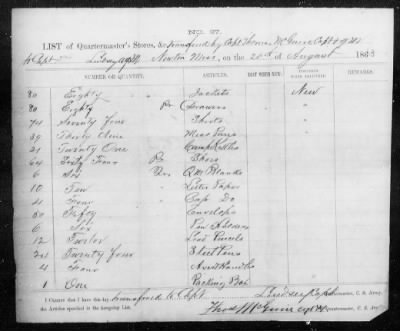 LIST of Quartermaster's Stores, &c transferred by Capt Thomas McGuire Capt & AQM
to Capt Lindsay AQM Newton Miss, on the 20th of August 1863
NUMBER OR QUANTITY. ARTICLES. COST WHEN NEW. CONDITION WHEN DELIVERED. REMARKS.
80 Eighty Jackets New
80 Eighty Pr Drawers "
74 Seventy Four Shirts "
39 Thirty Nine Mess Pans
21 Twenty One Camp Kettles
64 Sixty Four Prs Shoes
6 Six Qrs QM Blanks
10 Ten " Letter Paper
4 Four " Cap Do
50 Fifty Envelops
6 Six Pen Holders
12 Twelve Lead Pencils
24 Twenty Four Steel Pens
4 Four Axes & Handles
1 One Packing Box
I CERTIFY that I have this day transferred to Capt Lindsay Capt Quartermaster, C. S. Army,
the Articles specified in the foregoing List.
Thos McGuire Capt & AQM Quartermaster, C. S. Army.